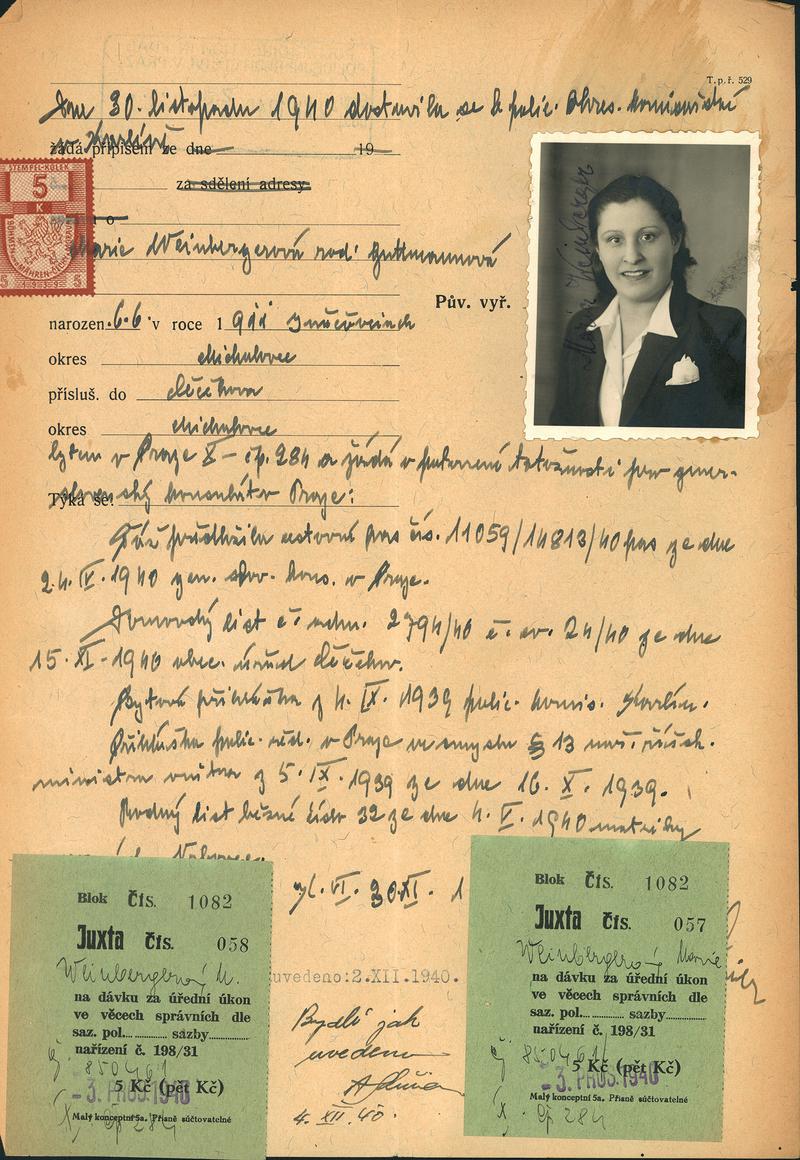 T. p. ř. 529
Dne 30. listopadu 1940 dostavila se k polic. okres. komisařství
v Karlíně
žádá připísem ze dne 19
za sdělení adresy
STEMPEL-KOLEK
5
K
BÖHMEN MÄHREN
5 5
Marie Weinbergerová rod. Guttmannová
Pův. vyř.
narozen. 6.6. v roce 1911
okres Michalovce
přísluš. do
okres Michalovce
bytem v Praze X - čp. 284 a žádá o potvrzení totožnosti pro gener.
slovenský konsulát v Praze:
Týká se:
Táž předložila cestovní pas čís. 11059/14813/40 pas ze dne
24. IV. 1940 gen. slov. kons. v Praze.
Domovský list č. 2794/40 č. ev. 24/40 ze dne
15. XI. 1940 obec. úřad
Bytová přihláška z 4. IX. 1939 polic. komis. Karlín.
Přihláška polic. řed. v Praze ve smyslu § 13 nař. říšsk.
ministra vnitra z 5. IX. 1939 ze dne 16. X. 1939.
Rodný list běžné číslo 32 ze dne 4. V. 1940 matriky
30. XI. 1
Marie Weinberger
Blok Čís. 1082
Juxta Čís. 058
Weinbergerová M.
na dávku za úřední úkon
ve věcech správních dle
saz. pol. sazby
nařízení č. 198/31
5 Kč (pět Kč)
-3. PROS. 1940
Malý konceptní 5a. Přísně súčtovatelné
X. čp 284
uvedeno: 2.XII.1940.
Bydlí jak
uvedeno
4. XII. 40.
Blok Čís. 1082
Juxta Čís. 057
Weinbergerová Marie
na dávku za úřední úkon
ve věcech správních dle
saz. pol. sazby
nařízení č. 198/31
5 Kč (pět Kč)
-3. PROS. 1940
Malý konceptní 5a. Přísně súčtovatelné
X. čp 284